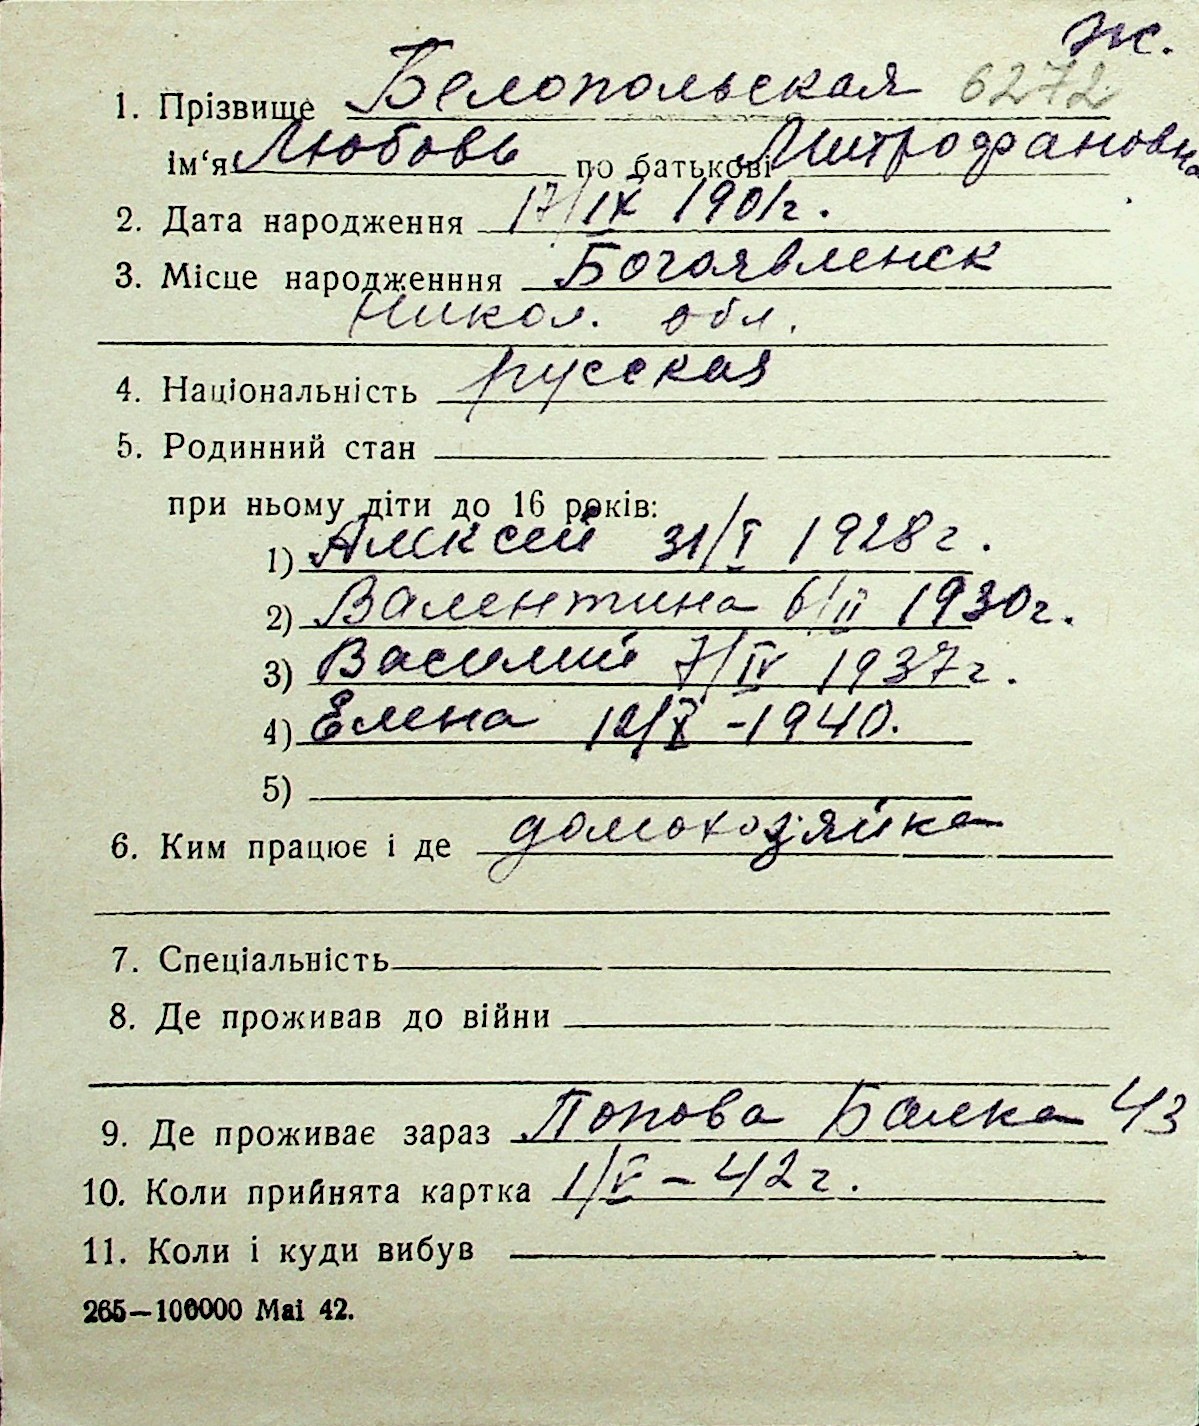 ж.
1. Прізвище Белопольская 6272
ім‘я Любовь по батькові Митрофановна
2. Дата народження 17/IX 1901г.
3. Місце народженння Богоявленск
Никол. обл.
4. Національність русская
5. Родинний стан
при ньому діти до 16 років:
1) Алексей 31/I 1928г.
2) Валентина 6/II 1930г.
3) Василий 7/IV 1937г.
4) Елена 12/X -1940.
5)
6. Ким працює і де домохозяйка
7. Спеціальність
8. Де проживав до війни
9. Де проживає зараз Попова Балка 43
10. Коли прийнята картка 1/V – 42г.
11. Коли і куди вибув
265—100000 Mai 42.